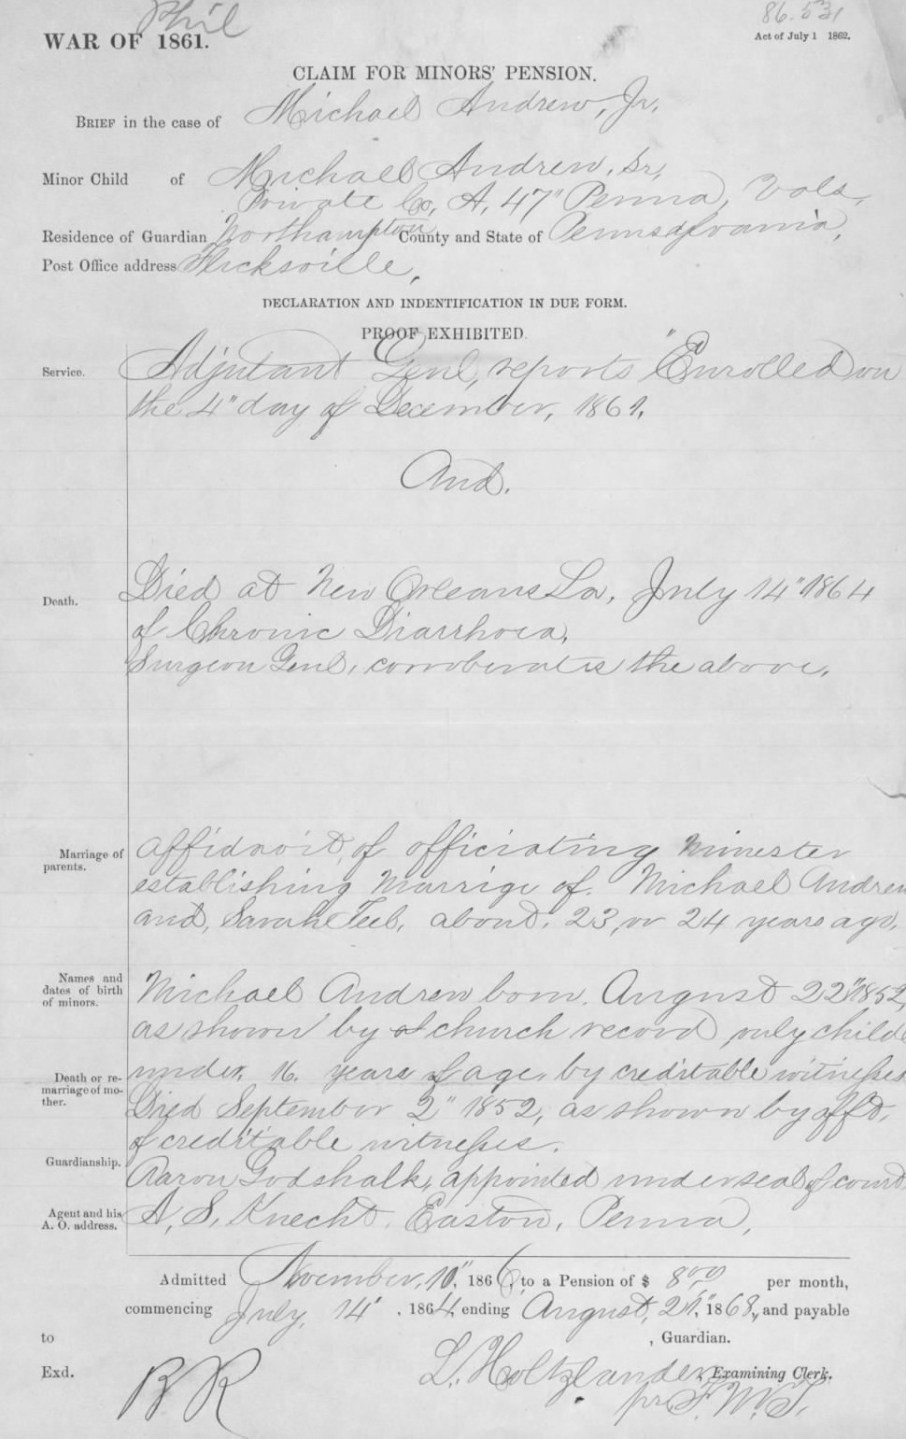 Phil
86.531
WAR OF 1861.
Act of July 1 1862.
CLAIM FOR MINORS' PENSION.
BRIEF in the case of Michael Andrew, Jr.
Minor Child of Michael Andrew, Sr,
Private Co, A, 47" Penna, Vols,
Residence of Guardian Northampton County and State of Pennsylvania,
Post Office address Flicksville,
DECLARATION AND INDENTIFICATION IN DUE FORM.
PROOF EXHIBITED.
Service. Adjutant Genl, reports "Enrolled on
the 4" day of December, 1861.
And.
Death. Died at New Orleans La, July 14" 1864
of Chronic Diarrhoea,
Surgeon Genl, corroberates the above,
Marriage of parents. Affidavit, of officiating Minester
establishing Marrige of. Michael Andrew
and, Sarah Teel, about. 23, or 24 years ago,
Names and dates of birth of minors. Michael Andrew born. August 22" 1852,
as shown by church record only child
under, 16. years of age, by creditable witnesses
Death or remarriage of mother. Died September 2" 1852, as shown by affd,
of creditable witnesses.
Guardianship. Aaron Godshalk, appointed under seal of court
Agent and his A. O. address. A, S, Knecht, Easton, Penna,
Admitted November, 10", 1866, to a Pension of $ 8 00 per month,
commencing July, 14", 1864, ending August, 21", 1868, and payable
to , Guardian.
Exd. BR L. Holtzlander, Examining Clerk.
pr. F. W. T.